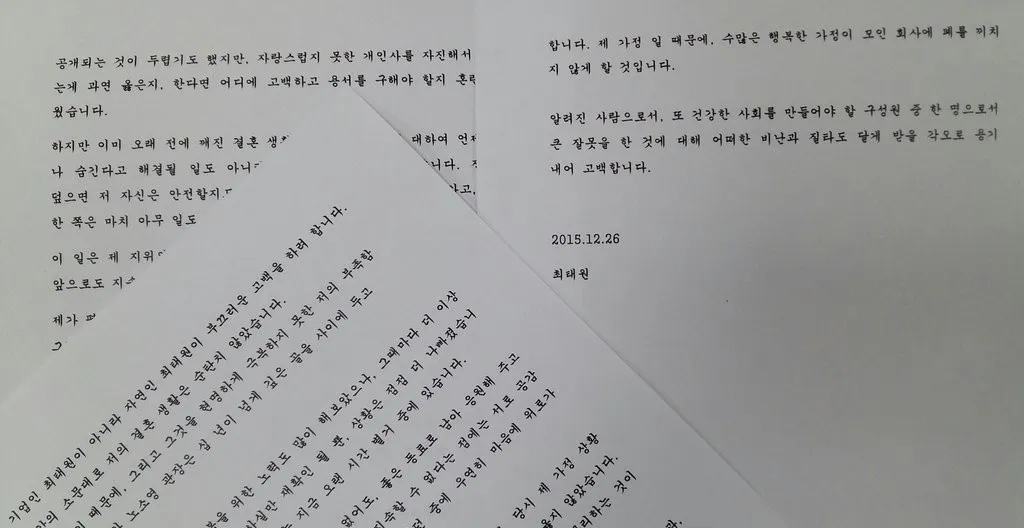 공개되는 것이 두렵기도 했지만, 자랑스럽지 못한 개인사를 자진해서
는게 과연 옳은지, 한다면 어디에 고백하고 용서를 구해야 할지
웠습니다.
하지만 이미 오래 전에 깨진 결혼 대하여
나 숨긴다고 해결될 일도
덮으면 저 자신은
한 쪽은 마치 아무 일도
이 일은 제
앞으로도
제가
합니다. 제 가정 일 때문에, 수많은 행복한 가정이 모인 회사에 폐를 끼치
지 않게 할 것입니다.
알려진 사람으로서, 또 건강한 사회를 만들어야 할 구성원 중 한 명으로서
큰 잘못을 한 것에 대해 어떠한 비난과 질타도 달게 받을 각오로 용기
내어 고백합니다.
2015.12.26
최태원
기업인 최태원이 아니라 자연인 최태원이 부끄러운 고백을 하려 합니다.
소문대로 저의 결혼 생활은 순탄치 않았습니다.
때문에, 그리고 그것을 현명하게 극복하지 못한 저의 부족함
노소영 관장은 십 년이 넘게 깊은 골을 사이에 두고
위한 노력도 많이 해보았으나, 그때마다 더 이상
재확인될 뿐, 상황은 점점 더 나빠졌습니
지금 오랜 시간 별거 중에 있습니다.
없어도, 좋은 동료로 남아 응원해 주고
수 없다는 점에는 서로 공감
중에 우연히 마음에 위로가
당시 제 가정 상황
않았습니다.
것이